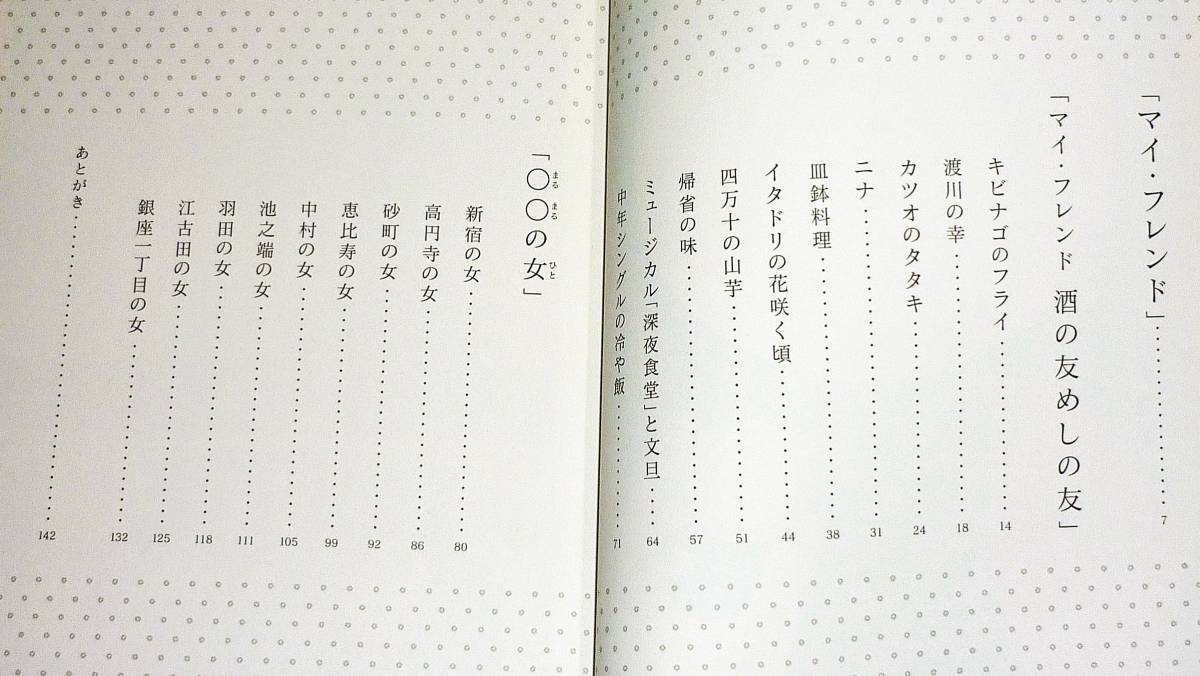 「マイ・フレンド」 7
「マイ・フレンド 酒の友めしの友」
キビナゴのフライ 14
渡川の幸 18
カツオのタタキ 24
ニナ 31
皿鉢料理 38
イタドリの花咲く頃 44
四万十の山芋 51
帰省の味 57
ミュージカル「深夜食堂」と文旦 64
中年シングルの冷や飯 71
「〇〇の女」
まる まる ひと
新宿の女 80
高円寺の女 86
砂町の女 92
恵比寿の女 99
中村の女 105
池之端の女 111
羽田の女 118
江古田の女 125
銀座一丁目の女 132
あとがき 142